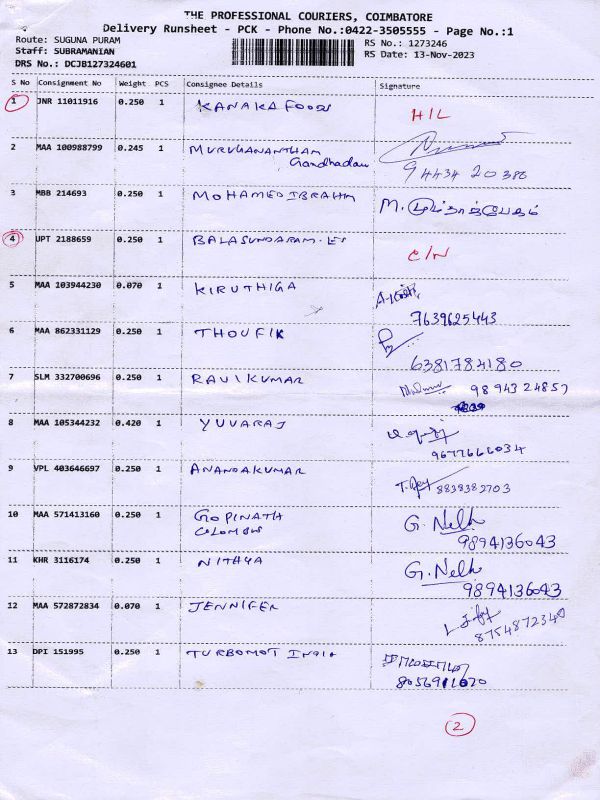 THE PROFESSIONAL COURIERS, COIMBATORE
Delivery Runsheet - PCK - Phone No.:0422-3505555 - Page No.:1
Route: SUGUNA PURAM
RS No.: 1273246
Staff: SUBRAMANIAN
RS Date: 13-Nov-2023
DRS No.: DCJB127324601
S No Consignment No Weight PCS Consignee Details Signature
1 JNR 11011916 0.250 1 KANAKA FOODS H/L
2 MAA 100988799 0.245 1 MURUGANANTHAM
Gandhadau
94434 20380
3 MBB 214693 0.250 1 MOHAMED IBRAHM M.
4 UPT 2188659 0.250 1 BALASUNDARAM. ES C/N
5 MAA 103944230 0.070 1 KIRUTHIGA
7639625443
6 MAA 862331129 0.250 1 THOUFIK
6381784180
7 SLM 332700696 0.250 1 RAVIKUMAR 9894324857
8 MAA 105344232 0.420 1 YUVARAJ
9677666034
9 VPL 403646697 0.250 1 ANANDAKUMAR
8838382703
10 MAA 571413160 0.250 1 GOPINATH G. Nelh
COLOMBUS 9894136043
11 KHR 3116174 0.250 1 NITHYA G. Nelh
9894136043
12 MAA 572872834 0.070 1 JENNIFER
8754872340
13 DPI 151995 0.250 1 TURBOMOT INDIA
8056911070
2